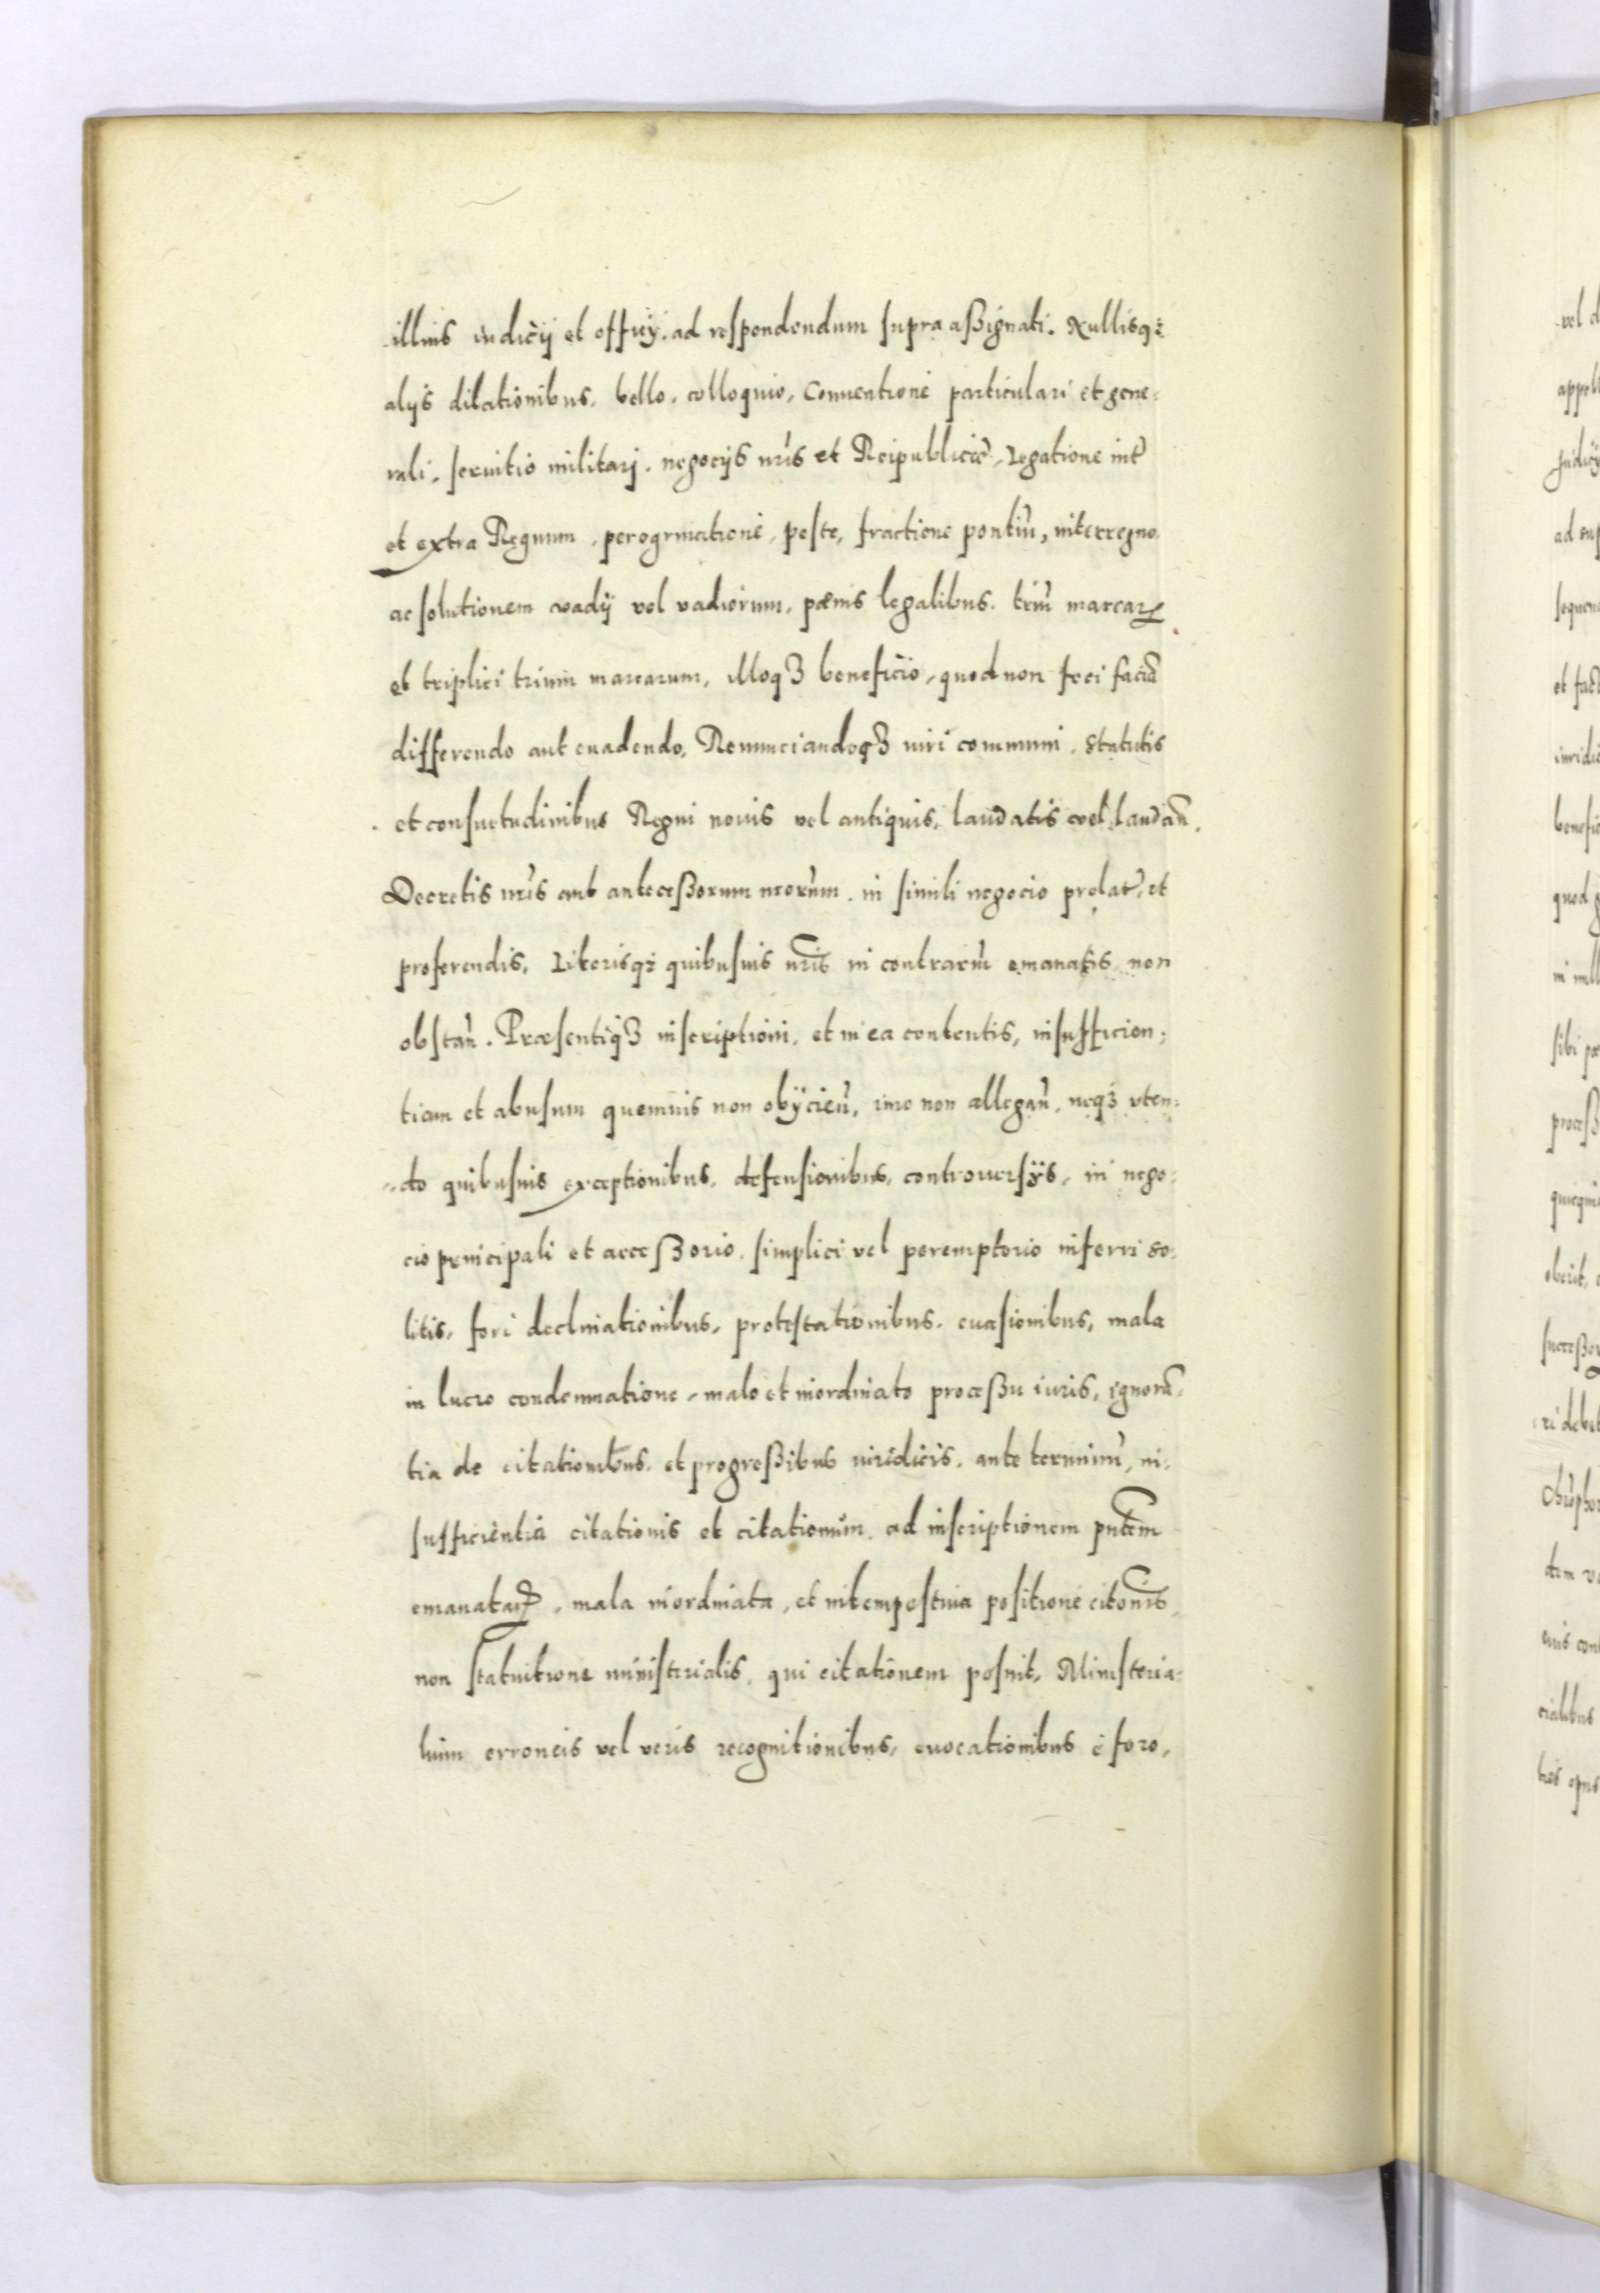 illius iudicÿ et officÿ. ad respondendum supra aßignati. Nullisq₃
alÿs dilationibus, bello, colloquio, Conuentione particulari et gene:
rali, seruitio militari, negocÿs nr̃is et Reipublicæ, Legatione intr̃
et extra Regnum, peregrinatione, peste, fractione pontiũ, interregno
ac solutionem vadÿ vel vadiorum, pœnis legalibus, triũ marcarꝝ
et triplici trium marcarum, illoqꝫ beneficio, quod non feci faciã
differendo aut euadendo, Renunciandoqꝫ iuri communi, statutis
et consuetudinibus Regni nouis vel antiquis, laudatis vel laudañ.
Decretis nr̃is aut anteceßorum nr̃orum, in simili negocio prolat̃, et
proferendis, Literisqꝫ quibusuis nr̃is in contrariũ emanatis non
obstañ. Præsentiqꝫ inscriptioni, et in ea contentis, insufficien:
tiam et abusum quemuis non obÿcieñ, imo non allegañ, neqꝫ vten:
do quibusuis exceptionibus, defensionibus, controuersÿs, in nego:
cio principali et acceßorio, simplici vel peremptorio inferri so:
litis, fori declinationibus, protestationibus, euasionibus, mala
in lucro condemnatione, malo et inordinato proceßu iuris, ignorã:
tia de citationibus, et progreßibus iuridicis, ante terminũ, in:
sufficientia citationis et citationum, ad inscriptionem pñtem
emanatarꝝ, mala inordinata, et intempestiua positione citõnis,
non statuitione ministerialis, qui citationem posuit, Ministeria:
lium erroneis vel veris recognitionibus, euocationibus è foro,
vel d
appell
Judicÿ
ad
et fact
iuridic
benefic
quod
in null
sibi
proceß
oberit,
succeßor
ri debet
tim
eius cont
cialibus